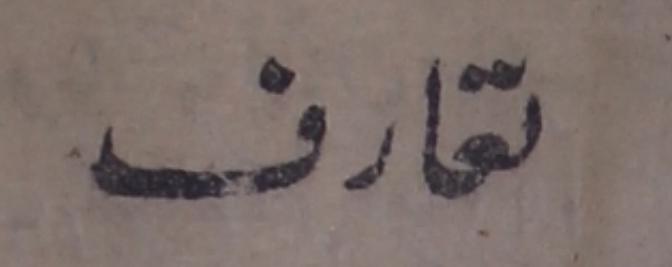 تعارف